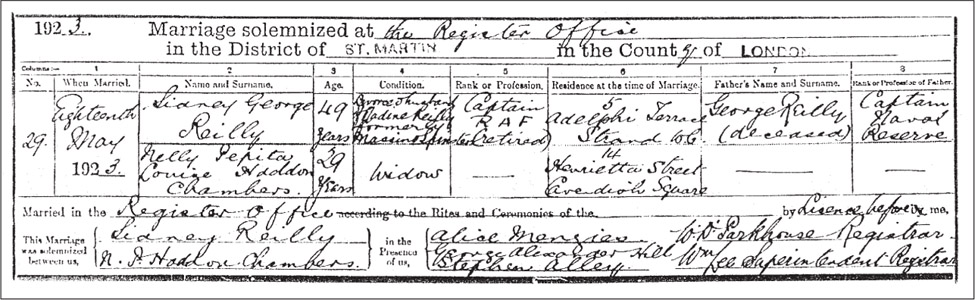 1923. Marriage solemnized at the Register Office
in the District of ST. MARTIN in the County of LONDON
Columns:— 1 2 3 4 5 6 7 8
No. When Married. Name and Surname. Age. Condition. Rank or Profession. Residence at the time of Marriage. Father's Name and Surname. Rank or Profession of Father.
29. Eighteenth May 1923.
Sidney George Reilly
49 years
formerly
Captain RAF (retired)
5 Adelphi Terrace Strand WC
George Reilly (deceased)
Captain Naval Reserve
Nelly Pepita Louise Haddon Chambers.
29 years
Widow
—
14 Henrietta Street Cavendish Square
— —
Married in the Register Office according to the Rites and Ceremonies of the by Licence before me,
This Marriage was solemnized between us,
Sidney Reilly
N. P. Haddon Chambers.
in the Presence of us,
Alice Menzies
George Alexander Hill
Stephen Alley
Parkhouse Registrar
Wm Lee Superintendent Registrar